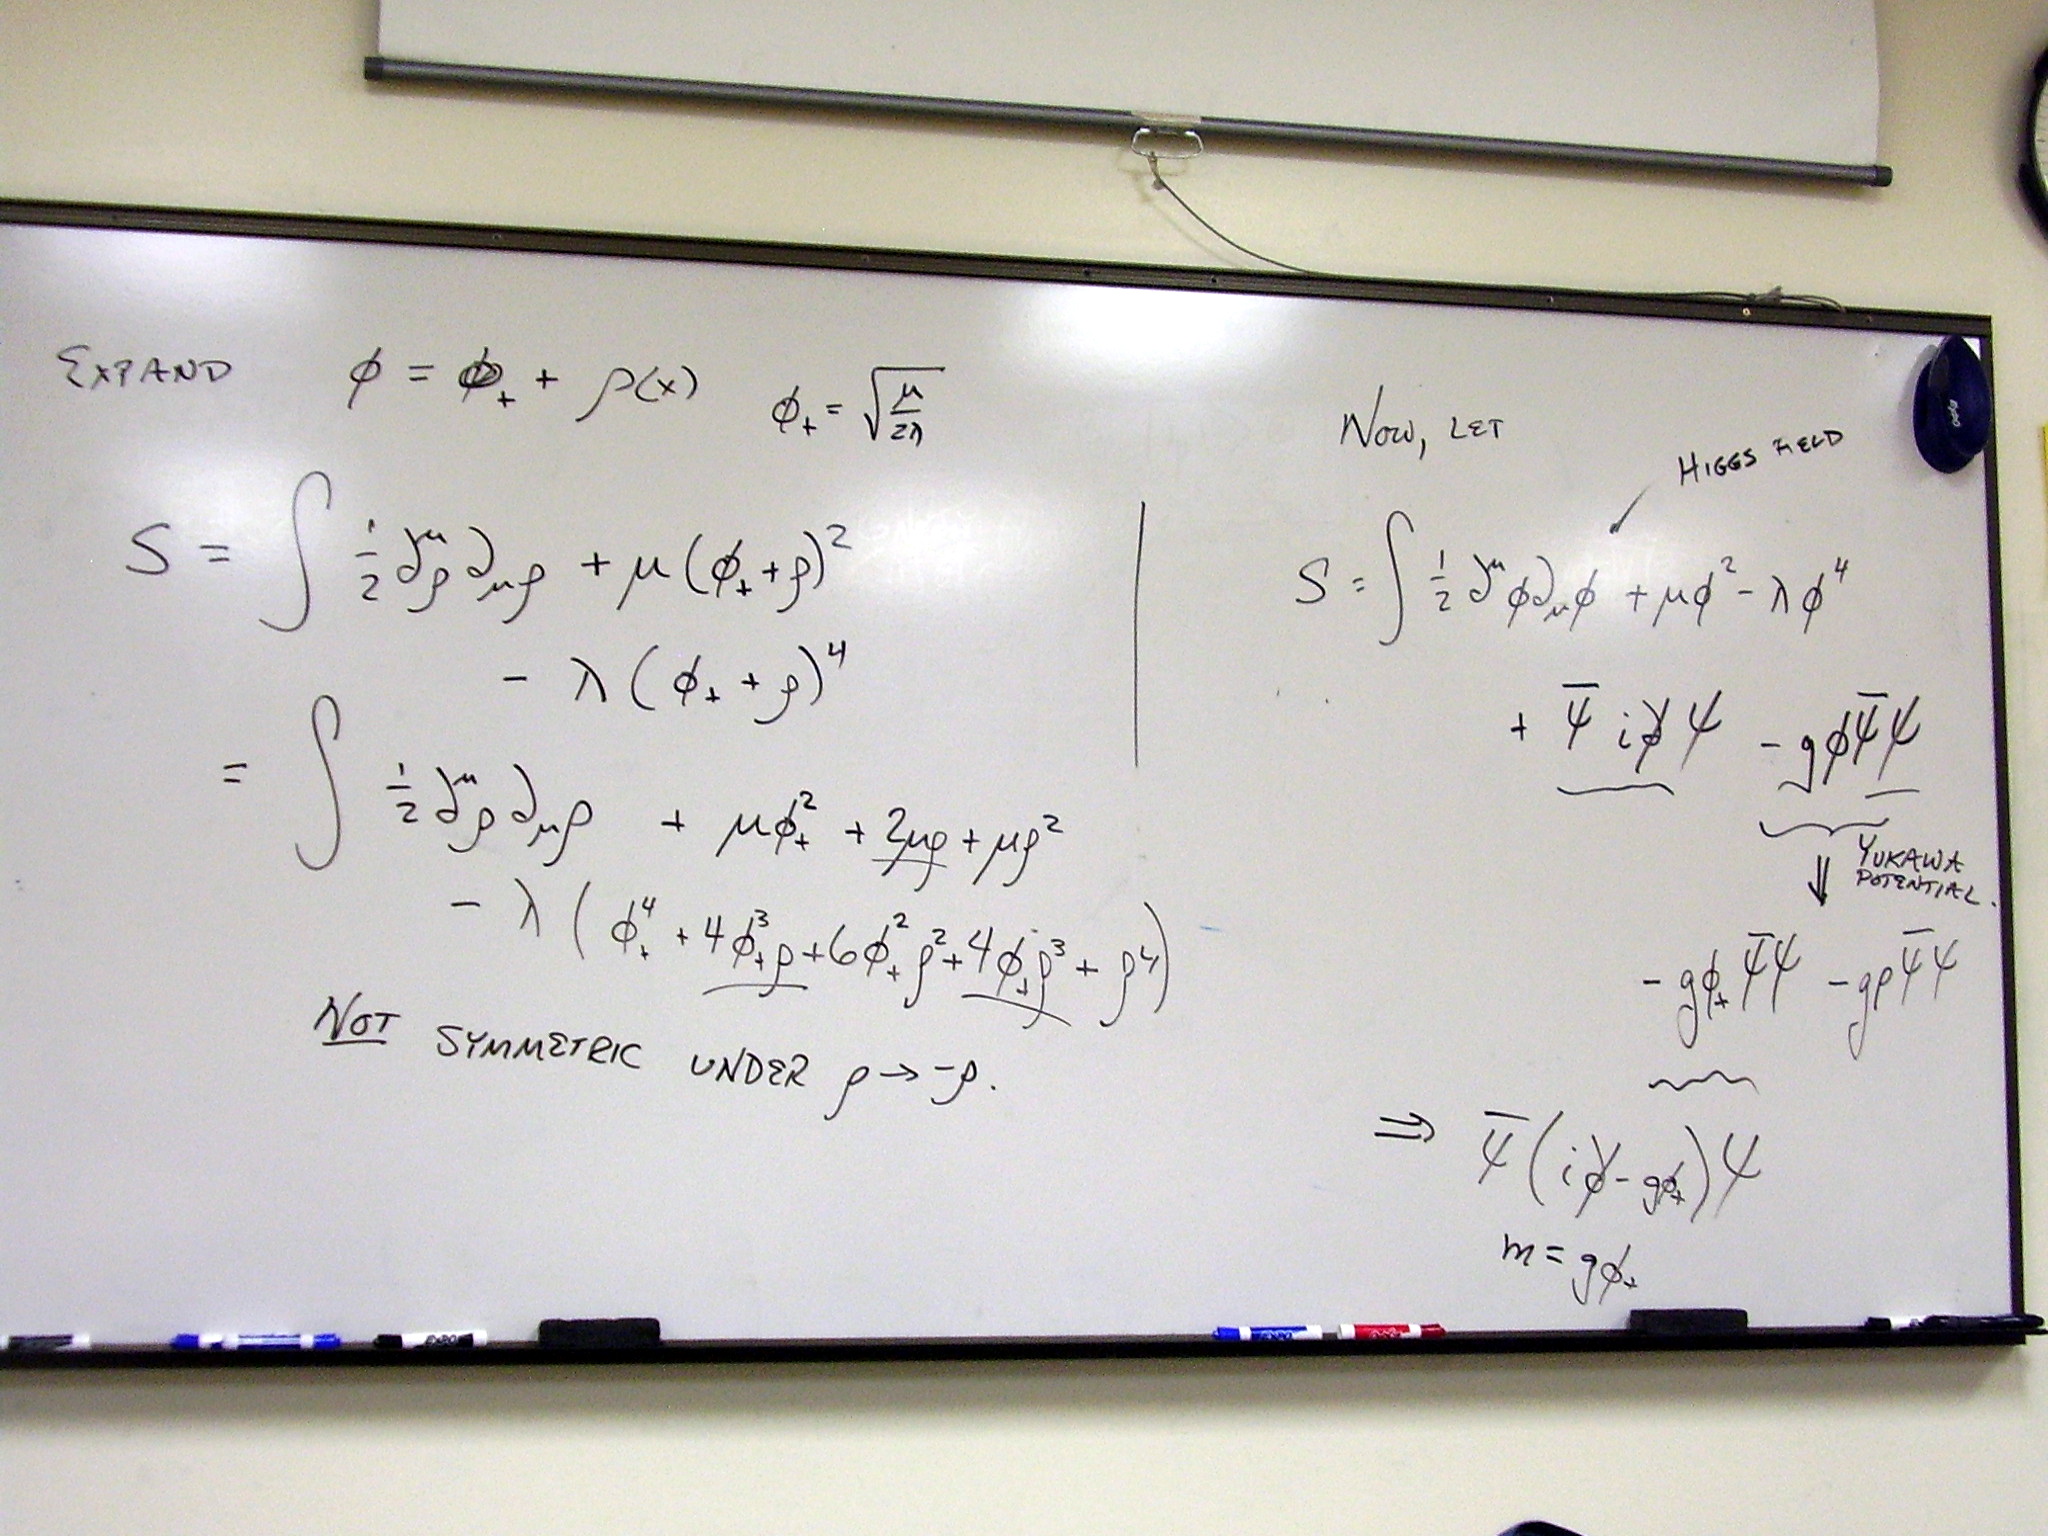 EXPAND φ = φ₊ + ρ(x) φ₊ = √(μ/2λ)
S = ∫ ½ ∂^μρ ∂_μρ + μ(φ₊+ρ)²
− λ(φ₊+ρ)⁴
= ∫ ½ ∂^μρ ∂_μρ + μφ₊² + 2μρ + μρ²
− λ(φ₊⁴ + 4φ₊³ρ + 6φ₊²ρ² + 4φ₊ρ³ + ρ⁴)
NOT SYMMETRIC UNDER ρ → −ρ.
NOW, LET
HIGGS FIELD
S = ∫ ½ ∂^μφ∂_μφ + μφ² − λφ⁴
+ ψ̄ i∂̸ ψ − gφψ̄ψ
⇓ YUKAWA
POTENTIAL.
− gφ₊ψ̄ψ − gρψ̄ψ
⇒ ψ̄(i∂̸ − gφ₊)ψ
m = gφ₊
EXPO
EXPO